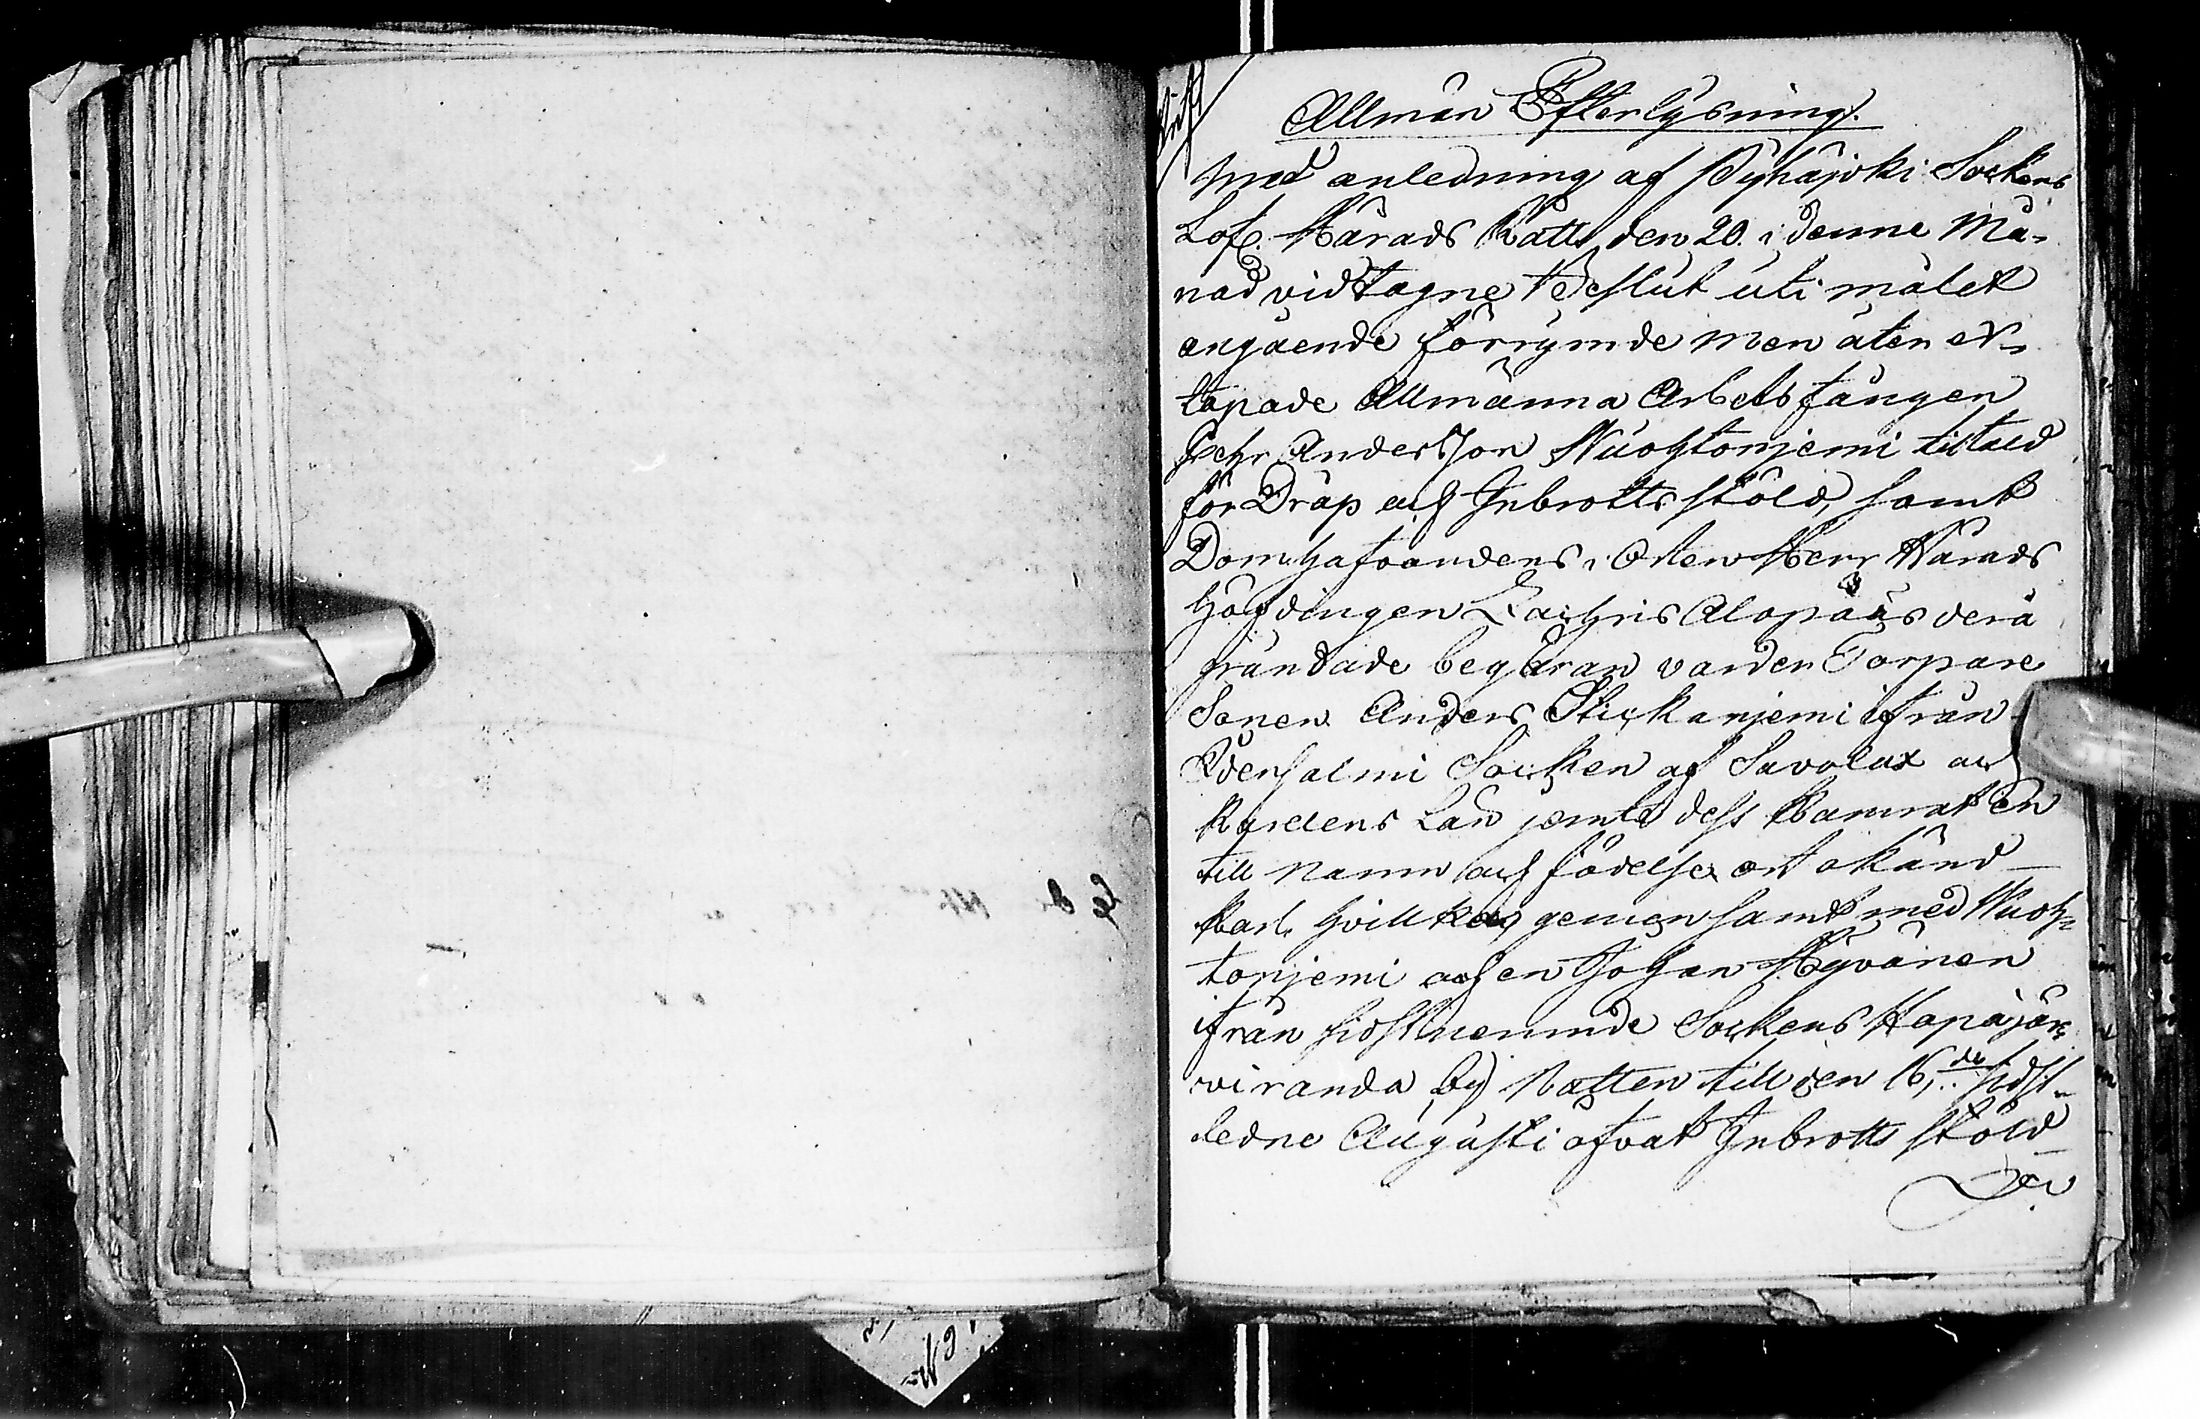 Allmän Efterlysning.
Med anledning af Pyhäjoki Sockens
Lofl. Härads Rätts den 20. i denne Må-
nad vidtagne beslut uti målet
angående förrymde men åter er-
tapade Allmänna Arbetsfången
Pehr Andersson Nuohtonjemi tilltald
för Dråp och Inbrotts stöld, samt
Domhafvandens i Orten Herr Härads
Höfdingen Zachris Alopæus derå
grundade begäran varder Torpare
Sonen Anders Stickanjemi ifrån
Idensalmi Socken af Savolax och
Karelens Län jemte dess Kamrat en
till namn och födelse ort okänd
Karl, hvilka gemensamt med Nuoh-
tonjemi och en Johan Hyvönen
ifrån sidstnemnde Sockens Hapajär-
viranda by Natten till den 16,de sidst-
ledne Augusti öfvat Inbrotts stöld